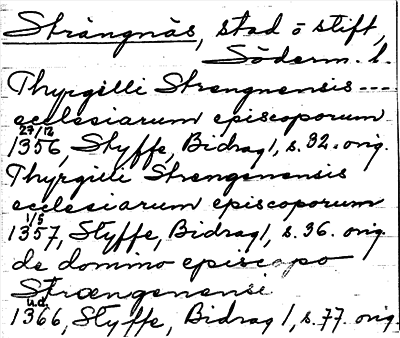 Strängnäs, stad o stift,
Söderm. l.
Thyrgilli Strengnensis ---
ecclesiarum episcoporum
27/12
1356, Styffe, Bidrag 1, s. 32. orig.
Thyrgilli Strengenensis
ecclesiarum episcoporum
1/5
1357, Styffe, Bidrag 1, s. 36. orig.
de domino episcopo
Strængenensi
u.d.
1366, Styffe, Bidrag 1, s. 77. orig.